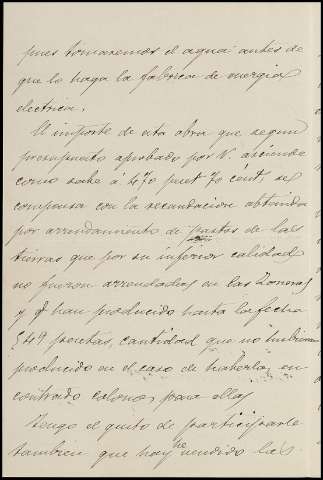 pues tomaremos el agua antes de
que lo haga la fabrica de energia
electrica.
El importe de esta obra que segun
presupuesto aprobado por V. asciende
como sabe á 470 pset 70 cént, se
compensa con la recaudacion obtenida
por arrendamiento de pastos de las
tierras que por su inferior calidad
no fueron arrendadas en las Zoneras
y q han producido hasta la fecha
549 pesetas, cantidad que no hubieran
producido en el caso de haberla en
contrado colonos para ellas
Tengo el gusto de participarle
tambien que hoy he vendido las